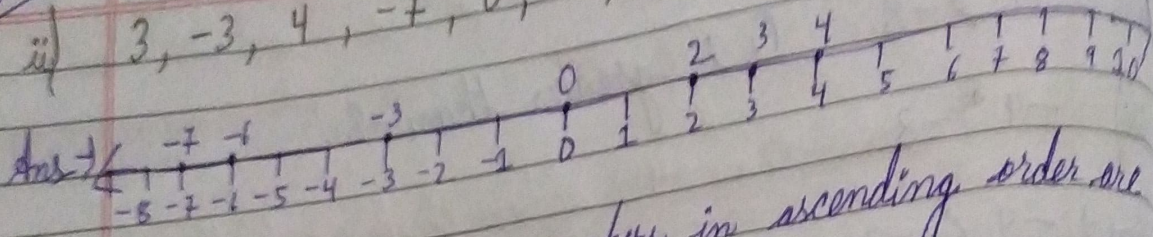 ii) 3, -3, 4, -7, 0,
0 2 3 4
-7 -6 -3
Ans→ -8 -7 -6 -5 -4 -3 -2 -1 0 1 2 3 4 5 6 7 8 9 10
in ascending order are